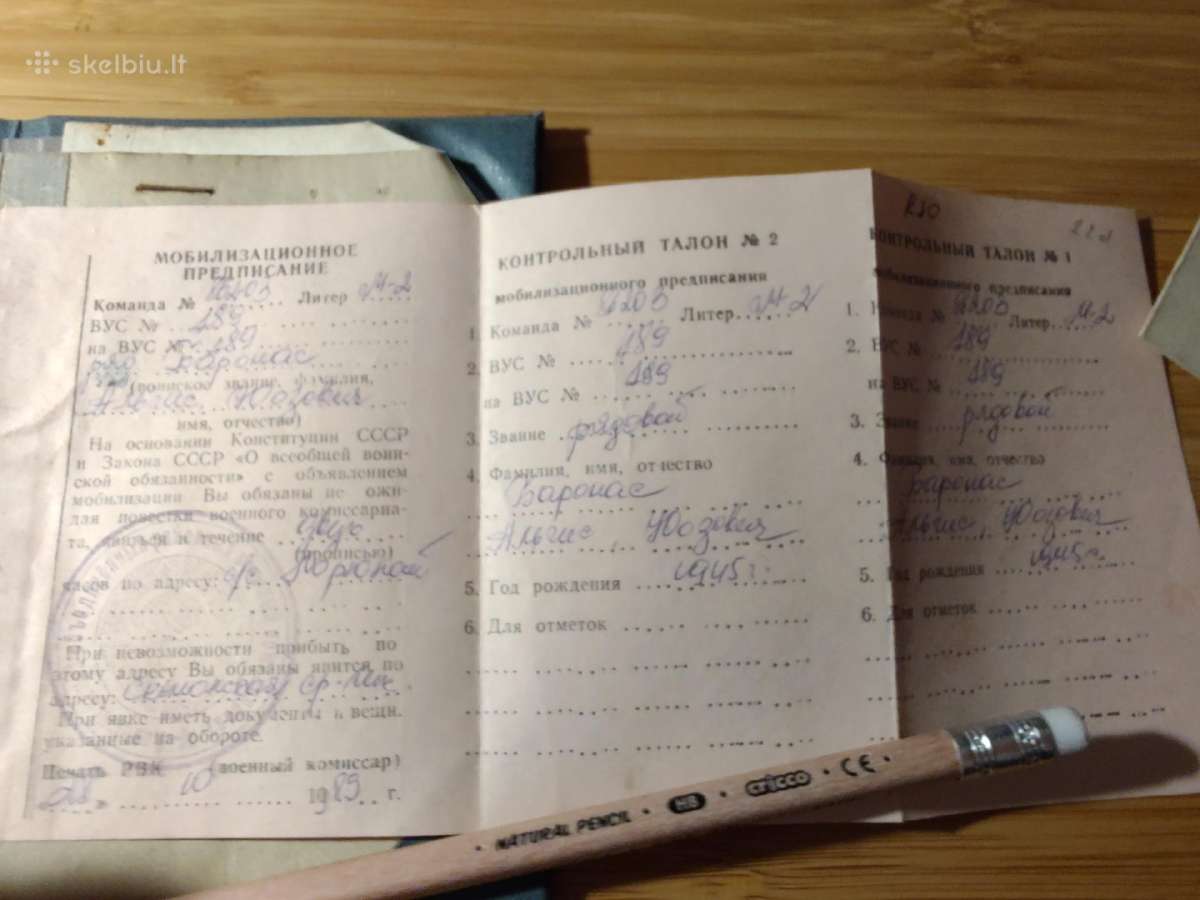 skelbiu.lt
МОБИЛИЗАЦИОННОЕ
ПРЕДПИСАНИЕ
Команда № Литер М-2
ВУС № 189
на ВУС № 189
ряд. Баронас
(воинское звание, фамилия,
Альгис Юозович
имя, отчество)
На основании Конституции СССР
и Закона СССР «О всеобщей воин-
ской обязанности» с объявлением
мобилизации Вы обязаны не ожи-
дая повестки военного комиссариа-
та, явиться в течение двух
(прописью)
часов по адресу: с/с
При невозможности прибыть по
этому адресу Вы обязаны явится по
адресу:
При явке иметь документы и вещи,
указанные на обороте.
Печать РВК (военный комиссар)
28 » 10 1983 г.
КОНТРОЛЬНЫЙ ТАЛОН № 2
мобилизационного предписания
1. Команда № Литер М-2
2. ВУС № 189
на ВУС № 189
3. Звание рядовой
4. Фамилия, имя, отчество
Баронас
Альгис Юозович
5. Год рождения 1945 г.
6. Для отметок
КОНТРОЛЬНЫЙ ТАЛОН № 1
мобилизационного предписания
1. Команда № Литер М-2
2. ВУС № 189
на ВУС № 189
3. Звание рядовой
4. Фамилия, имя, отчество
Баронас
Альгис, Юозович
5. Год рождения 1945 г.
6. Для отметок
NATURAL PENCIL HB cricco CE